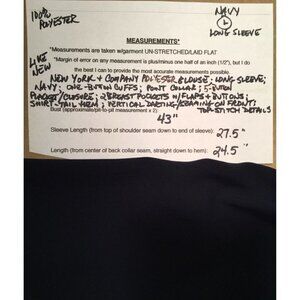 100% POLYESTER
NAVY
L
LONG SLEEVE
MEASUREMENTS*
*Measurements are taken w/garment UN-STRETCHED/LAID FLAT
*Margin of error on any measurement is plus/minus one half of an inch (1/2"), but I do
the best I can to provide the most accurate measurements possible.
LIKE NEW
NEW YORK + COMPANY POLYESTER BLOUSE; LONG SLEEVE;
NAVY; ONE-BUTTON CUFFS; POINT COLLAR; 5-BUTTON
PLACKET/CLOSURE; 2 BREAST POCKETS W/FLAPS + BUTTONS;
SHIRT-TAIL HEM; VERTICAL DARTING/SEAMING ON FRONT;
TOP-STITCH DETAILS
Bust (armpit/pit-to-pit measurement x 2):
43"
Sleeve Length (from top of shoulder seam down to end of sleeve): 27.5"
Length (from center of back collar seam, straight down to hem): 24.5"